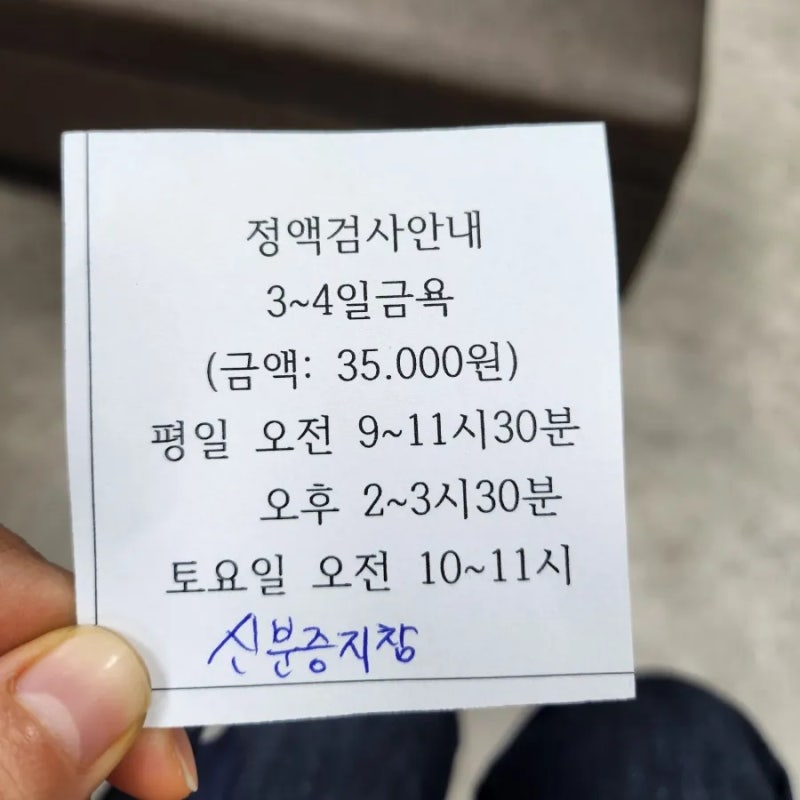 정액검사안내
3~4일금욕
(금액: 35.000원)
평일 오전 9~11시30분
오후 2~3시30분
토요일 오전 10~11시
신분증지참